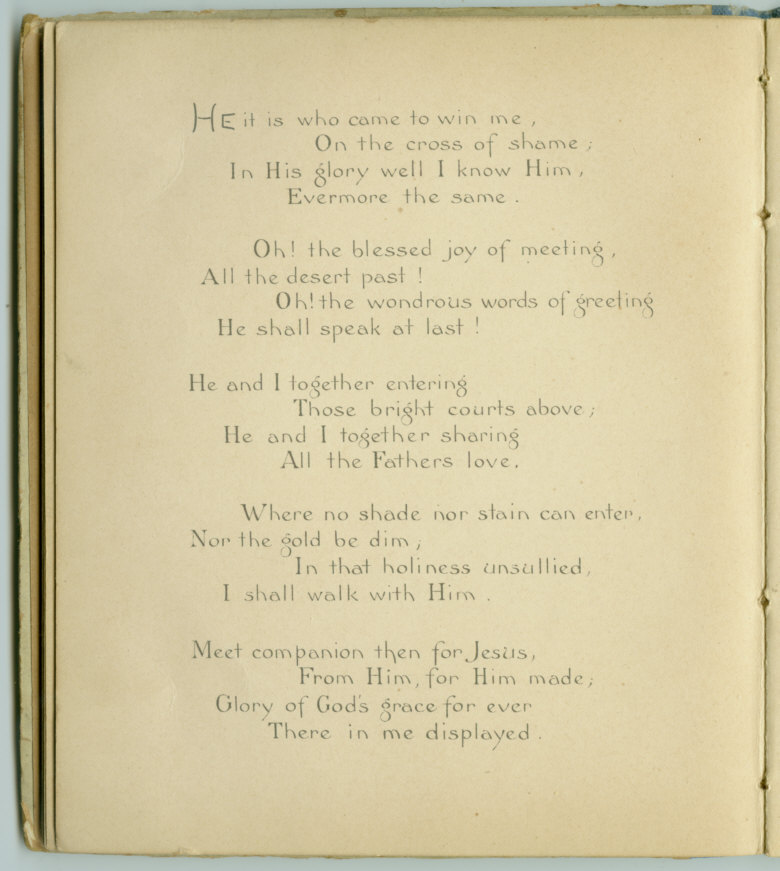 HE it is who came to win me,
On the cross of shame;
In His glory well I know Him,
Evermore the same.
Oh! the blessed joy of meeting,
All the desert past!
Oh! the wondrous words of greeting
He shall speak at last!
He and I together entering
Those bright courts above;
He and I together sharing
All the Fathers love.
Where no shade nor stain can enter,
Nor the gold be dim;
In that holiness unsullied,
I shall walk with Him.
Meet companion then for Jesus,
From Him, for Him made;
Glory of God's grace for ever
There in me displayed.